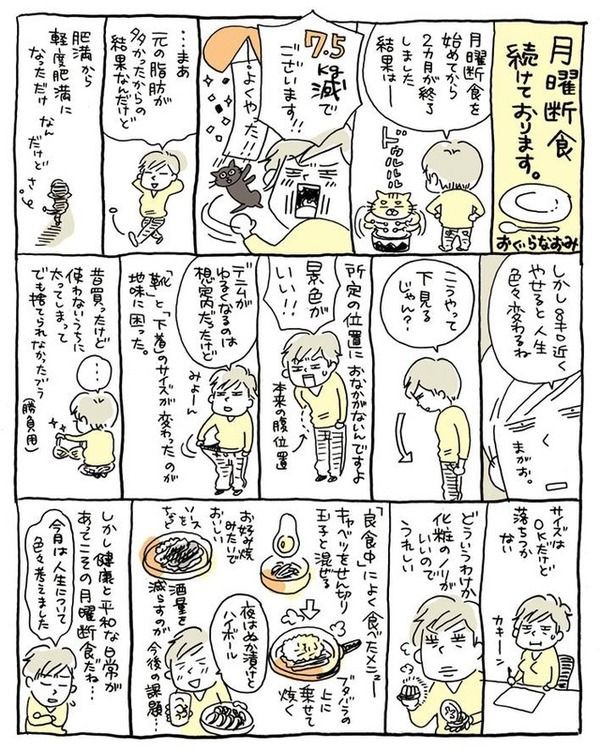 月曜断食
続けております。
おぐらなおみ
月曜断食を
始めてから
2カ月が終了
しました
結果はー
ドゥルルル
7.5
kg減で
ございます!!
よくやった!!
…まあ
元の脂肪が
多かったからの
結果なんだけど
肥満から
軽度肥満に
なっただけ なん
だけど さ
しかし8キロ近く
やせると人生
色々変わるね
まがお。
こうやって
下見る
じゃん?
所定の位置に
おなかがないんですよ
景色が
いい!!
本来の腹位置
デニムが
ゆるくなるのは
想定内だったけど
「靴」と「下着」のサイズが変わったのが
地味に困った。
みょーん
昔買ったけど
使わないうちに
太ってしまって
でも捨てられなかったブラ
(勝負用)
…
サイズは
OKだけど
落ちつか
ない
カキーン
どういうわけか
化粧のノリが
いいので
うれしい
「良食中」によく食べたメニュー
キャベツをせん切り
玉子と混ぜる
ブタバラの
上に
乗せて
焼く
お好み焼
みたいで
おいしい
ソース
など
夜はぬか漬けと
ハイボール
酒量を
減らすのが
今後の課題…
しかし健康と平和な日常が
あってこその月曜断食だね…
今月は人生について
色々考えました